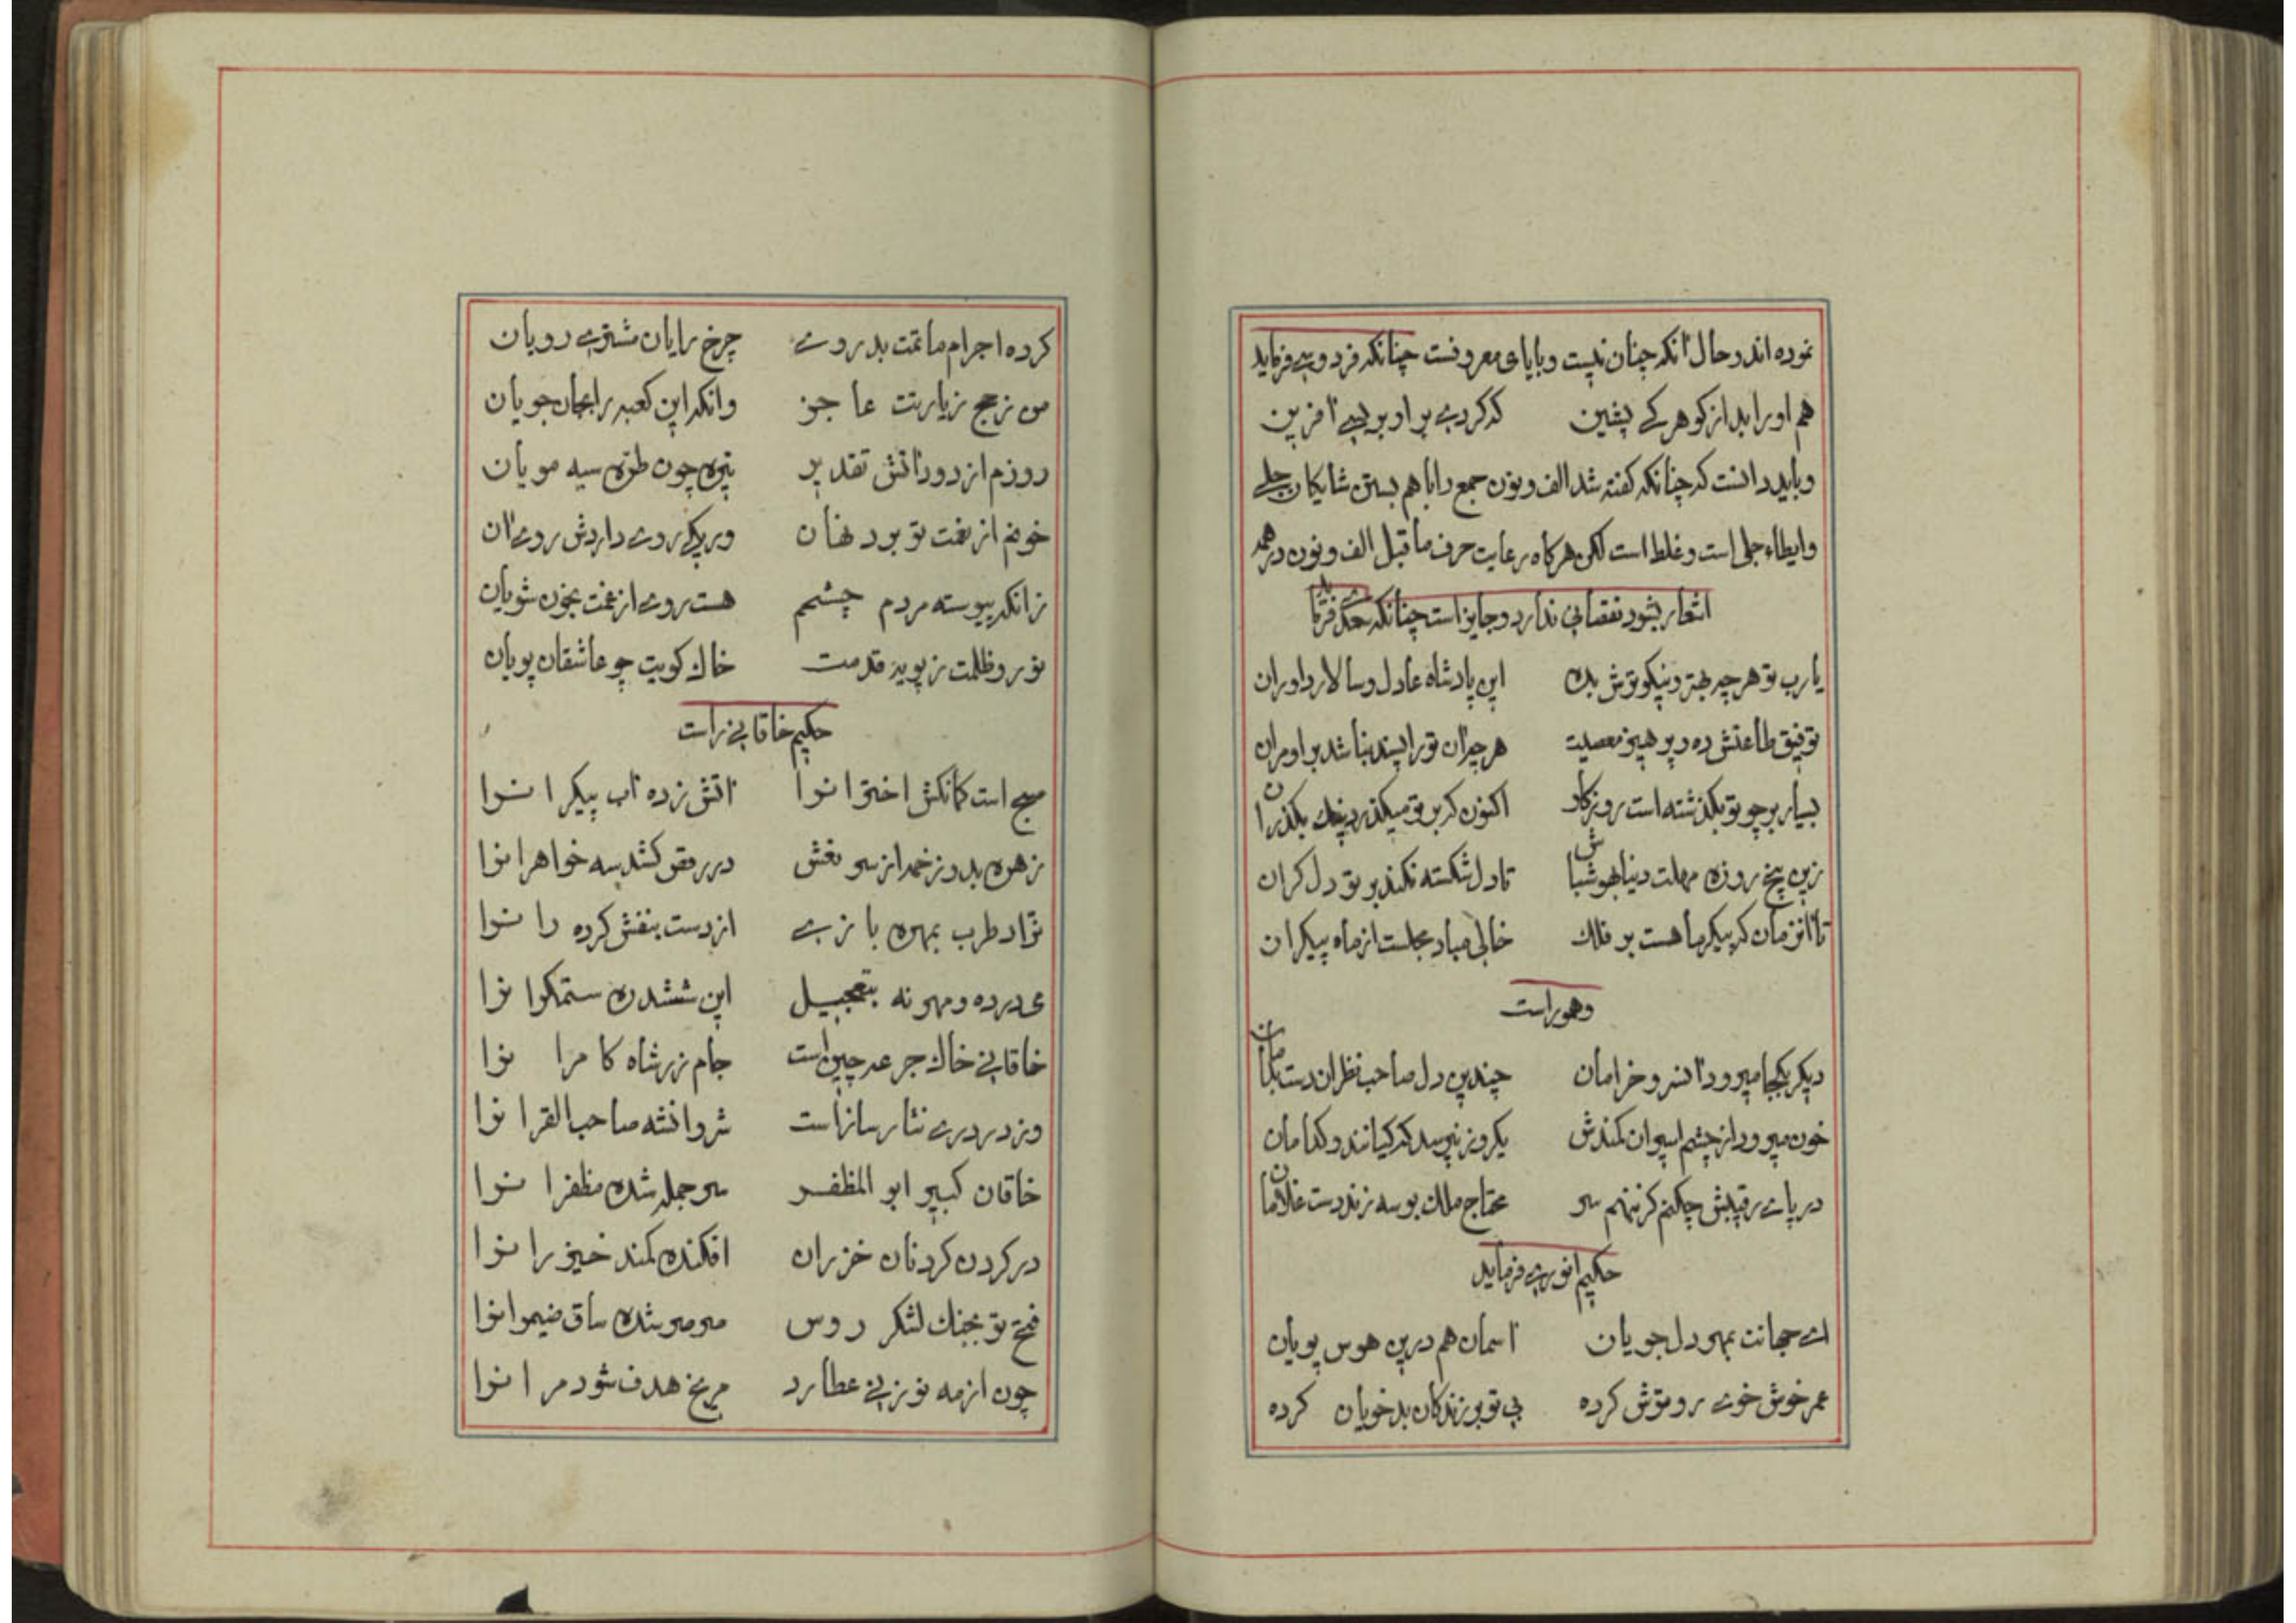 نموده اند و حال آنکه چنان نیست و بایای معروفست چنانکه فردوسی فرماید
هم اورا بد از کوهرکے کہ کردے بر او بر بسے آفرین
و باید دانست کہ چنانکہ کفته شد الف و نون جمع را باهم بستن شایکان جلے
وایطاء جلی است و غلط است لکن هرکاه رعایت حرف ماقبل الف و نون در همه
اشعار بشود نقصانی ندارد و جایز است چنانکه
یارب تو هرچه بهتر و نیکوتر ش بده این پادشاه عادل و سالار داوران
توفیق طاعتش ده و پرهیز معصیت هرچ ان تو را پسند نباشد بر او مران
بسیار بر چو تو بکذشته است روزکار اکنون که بر تو میکذرد نیک بکذران
زین پنج روزه مهلت دنیا بهوش باش تا دل شکسته نکند بر تو دل کران
تا آنزمان که پیکر ماهست بر فلک خالی مباد مجلست از ماه پیکران
و هم وراست
دیکر بکجا میرود آنسرو خرامان چندین دل صاحب نظران دست بدامان
خون میرود از چشم اسیران کمندش یکروز نپرسد که کیانند و کدامان
در پاے رقیبش چکنم کر ننهم سر محتاج ملک بوسه زند دست غلامان
حکیم انورے فرماید
اے جهانت بمهر دل جویان آسمان هم درین هوس پویان
عمر خوش خوے رو ترش کرده بی تو بر زندکان بد خویان کرده
کرده اجرام ماتمت بدروے چرخ رایان مشترے رویان
من ز حج زیارتت عاجز وانکه این کعبه را بجان جویان
روزم از دود آتش تقدیر تیره چون طره سیه مویان
خونم از نهان ور یکے روے داردش روے آن
زانکه پیوسته مردم چشم هست روے از غمت بخون شویان
نور و ظلمت ز پویه قدمت خاک کویت چو عاشقان پویان
حکیم خاقانی راست
صبح است کمانکش اخترانرا آتش زده آب پیکرانرا
زهره بدو زخمه از سر نعش در رقص کشد سه خواهرانرا
نراد طرب بمهره بازے از دست بنفش کرده رانرا
می درده و مهر نه بتعجیل این ششدره ستمکرانرا
خاقانی خاک جرعه چین است جام زر شاه کامرانرا
وز در درے نثار سازاست شروانشه صاحب القرانرا
خاقان کبیر ابو المظفر سرجمله شده مظفرانرا
در کردن کردنان خزران افکنده کمند خیزرانرا
فتح تو بجنک لشکر روس صرصر شده ساق ضیمرانرا
چون از مه نو زنی عطارد مریخ هدف شود مرانرا